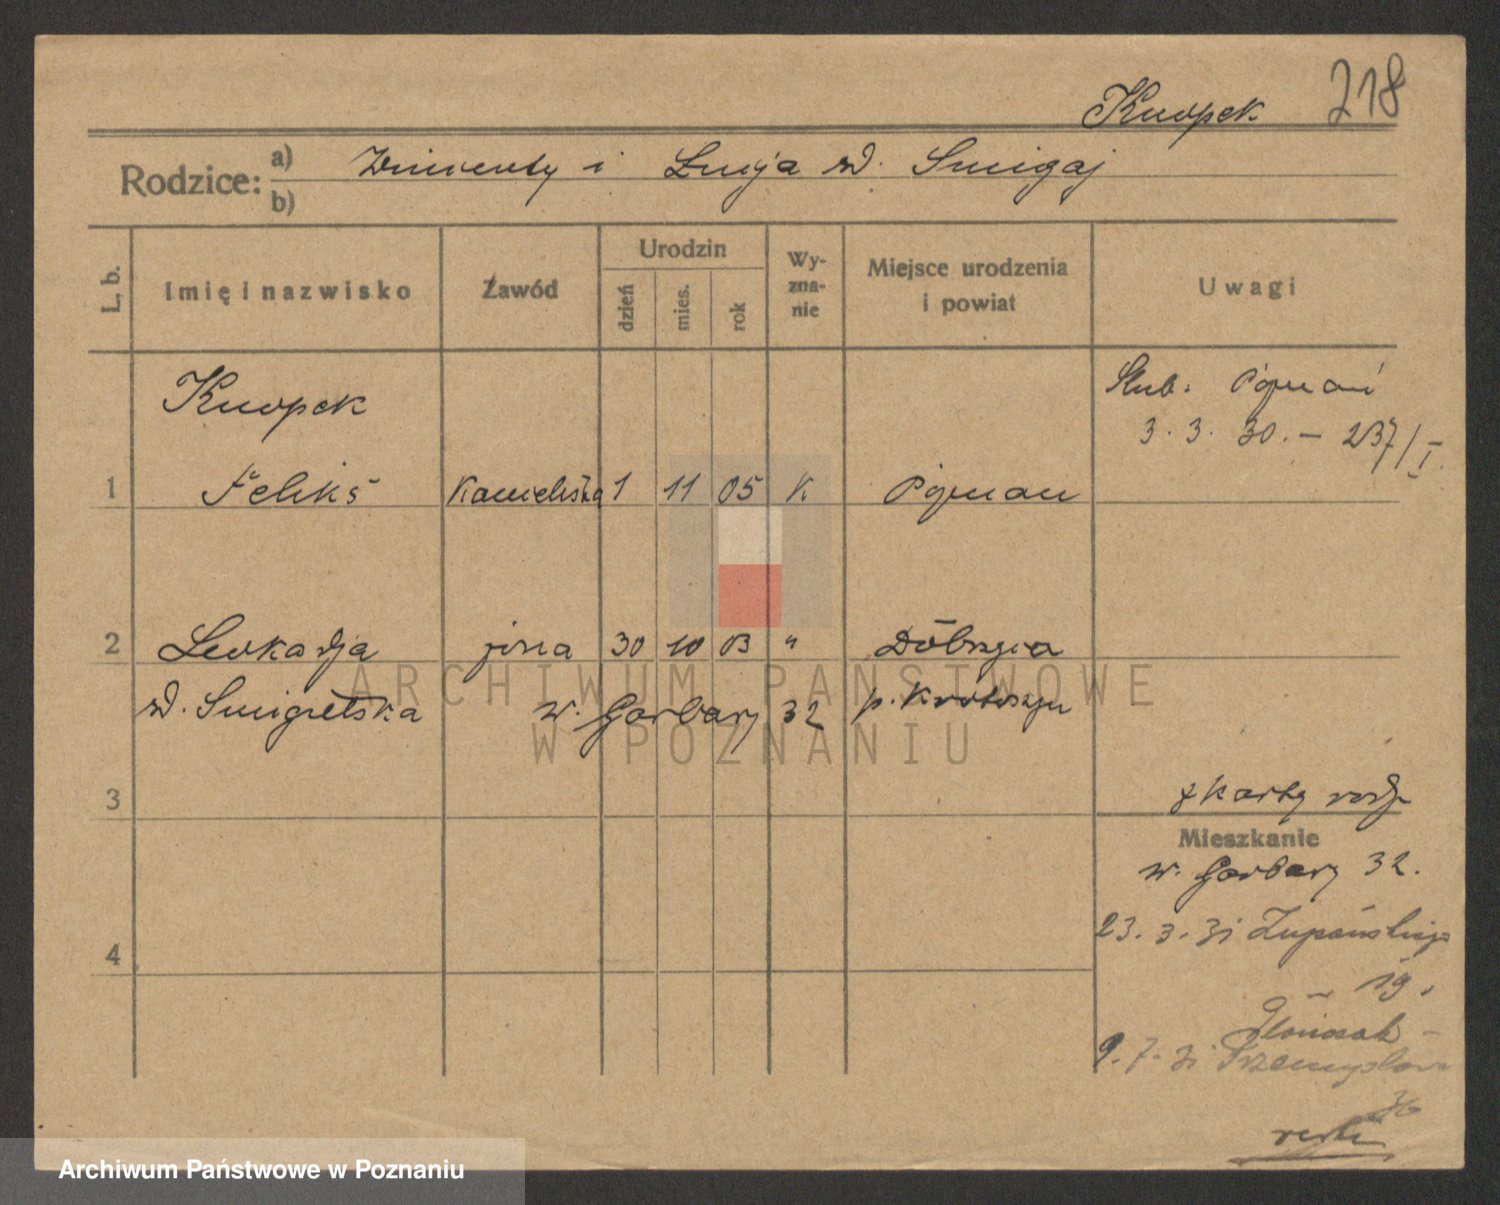 Knopek 218
Rodzice: a) Wincenty i Łucja zd. Smigaj
b)
L. b.
Imię i nazwisko
Zawód
Urodzin
dzień
mies.
rok
Wy-
zna-
nie
Miejsce urodzenia
i powiat
Uwagi
Knopek
Ślub. Poznań
3. 3. 30. – 237/I.
1 Feliks 1 11 05 K Poznań
2 Leokadja 30 10 03 "
zd. w. Garbary 32 p. Krotoszyn
3
z karty rodz
Mieszkanie
w. Garbary 32.
23. 3. 31 Żupańskiego
19.
4
9. 7. 31 Przemysłowa
ARCHIWUM PAŃSTWOWE
W POZNANIU
Archiwum Państwowe w Poznaniu